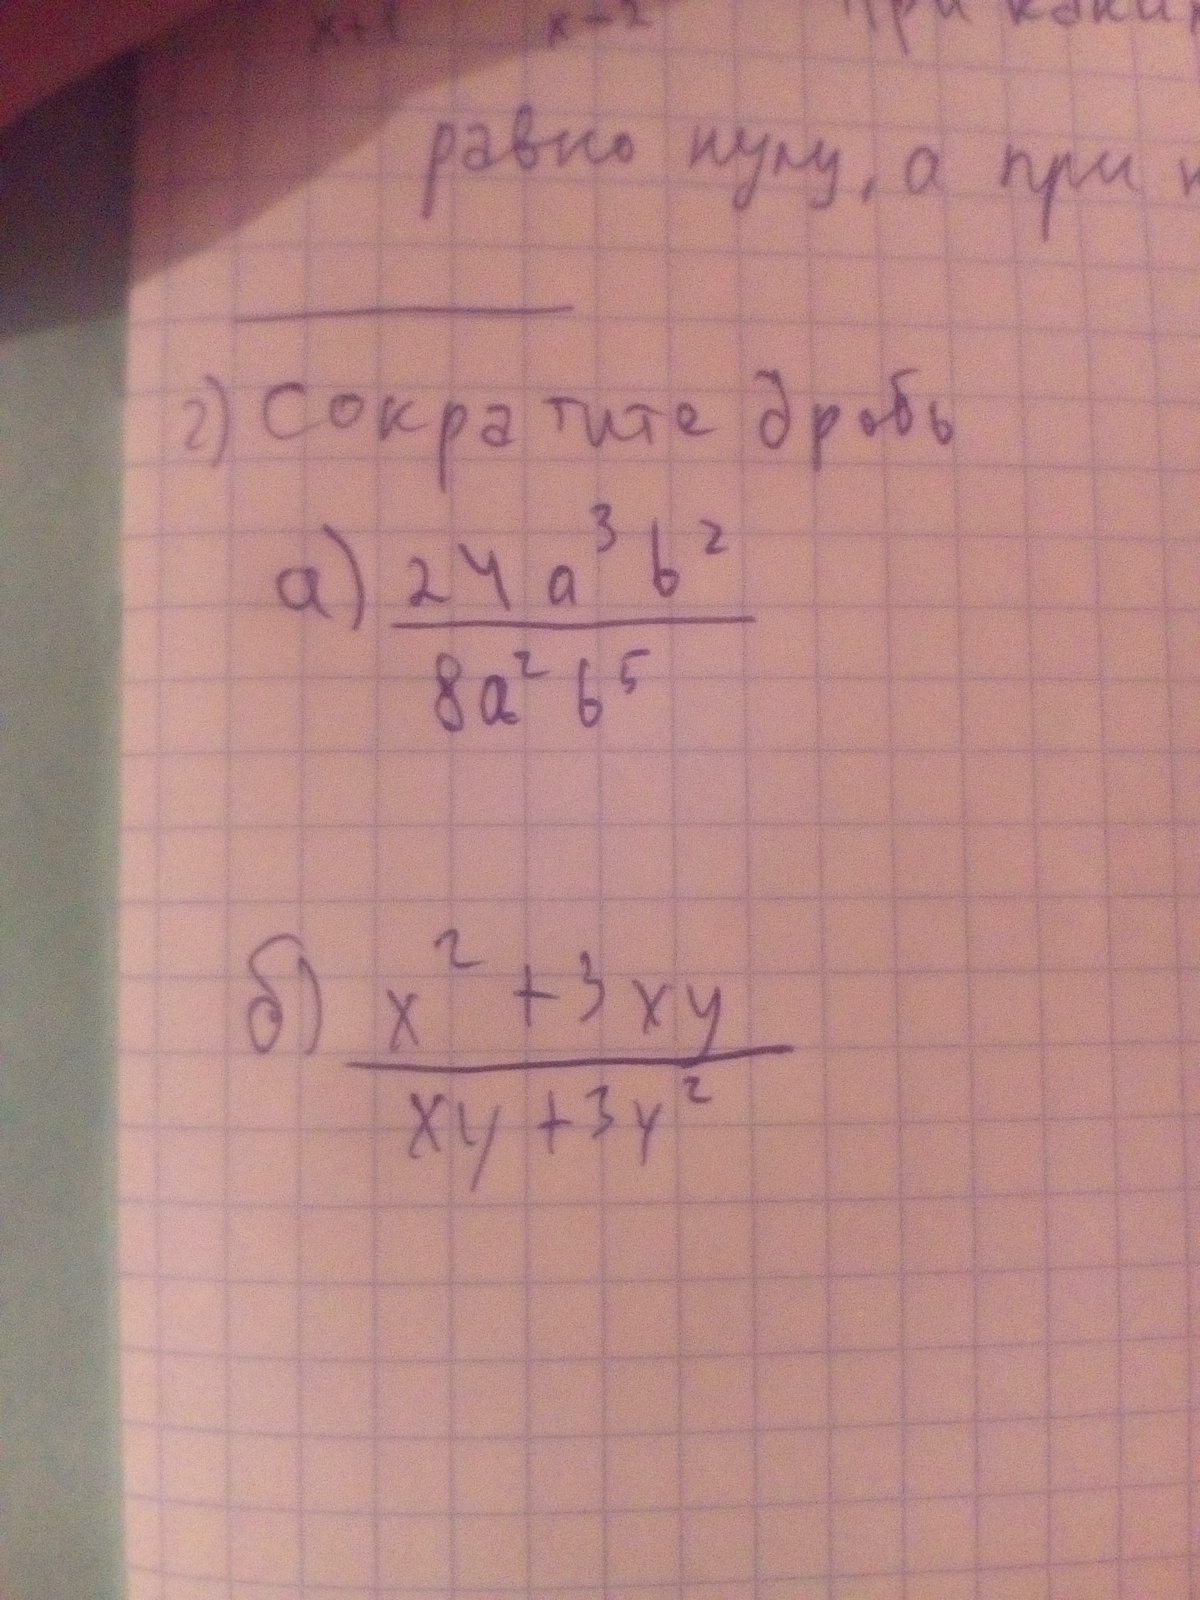 x+1 x-2 При каки
равно нулу, а при к
2) Сократите дробь
а) 24a³b²
8a²b⁵
б) x²+3xy
xy+3y²